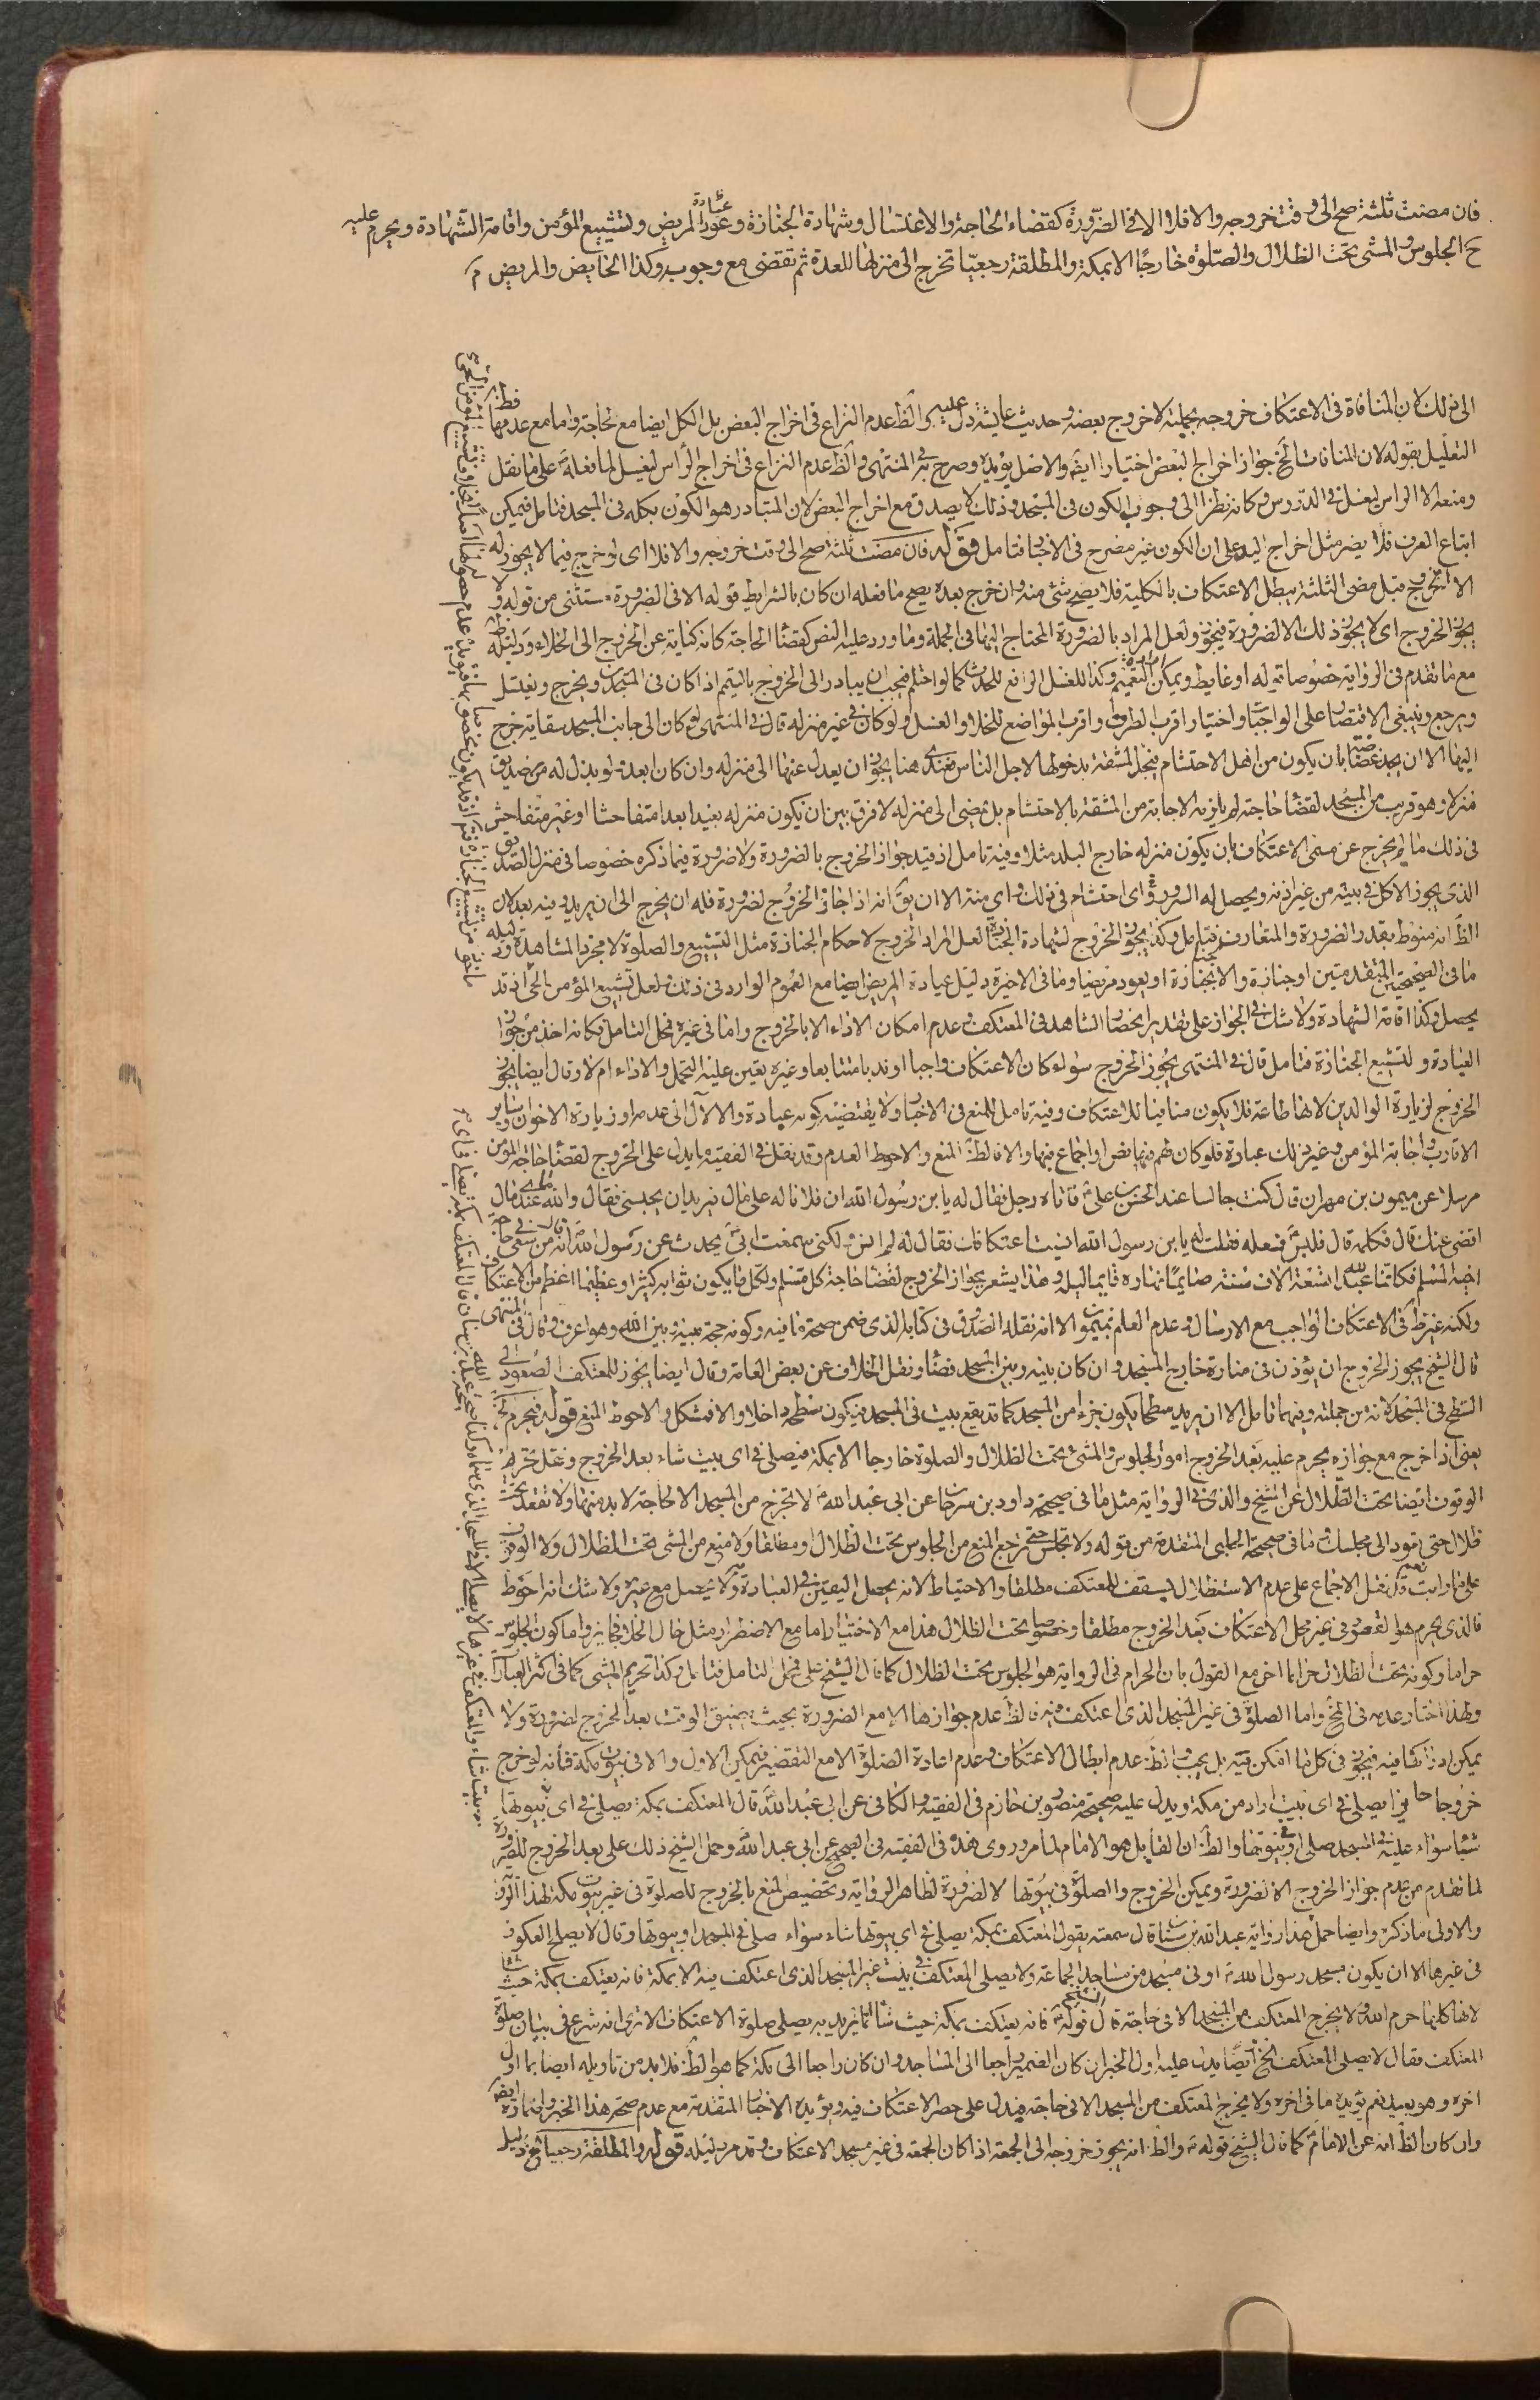 فان مضت ثلثة صح الى وقت خروجه والا فلا الا فى الضرورة كقضاء الحاجة والاغتسال وشهادة الجنازة وعود المريض وتشييع المؤمن واقامة الشهادة ويحرم عليه
ح الجلوس والمشى تحت الظلال والصلوة خارجا الا بمكة والمطلقة رجعيا تخرج الى منزلها للعدة ثم تقضى مع وجوبه وكذا الحايض والمريض
الى ذلك لان المنافاة فى الاعتكاف خروجه بجملته لا خروج بعضه وحديث عايشة دل عليه والظ عدم النزاع فى اخراج البعض بل الكل ايضا مع الحاجة واما مع عدمها
التعليل بقوله لان المنافات الخ جواز اخراج البعض اختيارا ايضا والاصل يؤيده وصرح به فى المنتهى والظ عدم النزاع فى اخراج الراس ليغسل لما فعله على ما نقل
ومنعه الا الراس لغسل فى الدروس وكانه نظرا الى وجوب الكون فى المسجد وذلك لا يصدق مع اخراج البعض لان المتبادر هو الكون بكله فى المسجد فتامل فيمكن
اتباع العرف فلا يضر مثل اخراج اليد على ان الكون غير مصرح فى الاخبار فتامل قوله فان مضت ثلثة صح الى وقت خروجه والا فلا اى لو خرج فيما لا يجوز له
الخروج قبل مضى الثلثة يبطل الاعتكاف بالكلية فلا يصح شئ منه وان خرج بعده يصح ما فعله ان كان بالشرايط قوله الا فى الضرورة مستثنى من قوله ولا
يجوز الخروج اى لا يجوز ذلك الا لضرورة فيجوز ولعل المراد بالضرورة المحتاج اليها فى الجملة وما ورد عليه النص كقضاء الحاجة كانه كناية عن الخروج الى الخلاء ودليله
مع ما تقدم فى الرواية خصوصا قوله او غايط ويمكن التعميم وكذا للغسل الرافع للحدث كما لو احتلم فيجب ان يبادر الى الخروج بالتيمم اذا كان فى المسجدين ويخرج ويغتسل
ويرجع وينبغى الاقتصار على الواجبات واختيار اقرب الطرق واقرب المواضع للخلاء والغسل ولو كان فى غير منزله قال فى المنتهى لو كان الى جانب المسجد سقاية خرج
اليها الا ان يجد غضاضة بان يكون من اهل الاحتشام فيجد المشقة بدخولها لاجل الناس فعندى هنا يجوز ان يعدل عنها الى منزله وان كان ابعد ولو بذل له صديق
منزلا وهو قريب من المسجد لقضاء حاجته لم يلزمه الاجابة من المشقة بالاحتشام بل يمضى الى منزله لا فرق بين ان يكون منزله بعيدا بعدا متفاحشا او غير متفاحش
فى ذلك ما لم يخرج عن مسمى الاعتكاف بان يكون منزله خارج البلد مثلا وفيه تامل اذ قيد جواز الخروج بالضرورة ولا ضرورة فيما ذكره خصوصا فى منزل الصديق
الذى يجوز الاكل فى بيته من غير اذنه ويحصل له السرور واى احتشام فى ذلك واى منة الا ان يق انه اذا جاز الخروج لضرورة فله ان يخرج الى ان يريد وفيه بعد لان
الظ انه منوط بقدر الضرورة والمتعارف فتامل وكذا يجوز الخروج لشهادة الجنازة لعل المراد الخروج لاحكام الجنازة مثل التشييع والصلوة لا مجرد المشاهدة ودليله
ما فى الصحيحتين المتقدمتين او جنازة والا لجنازة او يعود مريضا وما فى الاخيرة دليل عيادة المريض ايضا مع العموم الوارد فى ذلك ولعل تشييع المؤمن الحى اذ قد
يحصل وكذا اقامة الشهادة ولا شك فى الجواز على تقدير انحصار الشاهد فى المعتكف وعدم امكان الاداء الا بالخروج واما فى غيره فمحل التامل فكانه اخذ من جواز
العيادة وتشييع الجنازة فتامل قال فى المنتهى يجوز الخروج سواء كان الاعتكاف واجبا او ندبا متتابعا وغيره تعين عليه التحمل والاداء ام لا وقال ايضا يجوز
الخروج لزيارة الوالدين لانها طاعة فلا يكون منافيا للاعتكاف وفيه تامل للمنع فى الاخبار ولا يقتضيه كونه عبادة والا لآل الى عدمه او زيارة الاخوان وساير
الاقارب واجابة المؤمن وغير ذلك عبادة فلو كان لهم فيها نص او اجماع فبها والا فالظ المنع والاحوط العدم وقد نقل فى الفقيه ما يدل على الخروج لقضاء حاجة المؤمن
مرسلا عن ميمون بن مهران قال كنت جالسا عند الحسن بن على ع فاتاه رجل فقال له يا بن رسول الله ان فلانا له على مال يريد ان يحبسنى فقال والله ما عندى مال
اقضى عنك قال فكلمه قال فلبس ع نعله فقلت له يا بن رسول الله انسيت اعتكافك فقال له لم انس ولكنى سمعت ابى ع يحدث عن رسول الله انه قال من سعى فى حاجة
اخيه المسلم فكانما عبد الله تسعة الاف سنة صايما نهاره قايما ليله وهذا يشعر بجواز الخروج لقضاء حاجة كل مسلم ولكل ما يكون ثوابه كثيرا وعظيما اعظم من الاعتكاف
ولكنه غير ظ فى الاعتكاف الواجب مع الارسال وعدم العلم بميمون الا انه نقله الصدوق فى كتابه الذى ضمن صحة ما فيه وكونه حجة بينه وبين الله وهو اعرف وقال فى المنتهى
قال الشيخ يجوز الخروج ان يؤذن فى منارة خارج المسجد وان كان بينه وبين المسجد فضاء ونقل الخلاف عن بعض العامة وقال ايضا يجوز للمعتكف الصعود الى
السطح فى المسجد لانه من جملته وفيهما تامل الا ان يريد سطحا يكون جزء من المسجد كما قد يقع بيت فى المسجد فيكون سطحه داخلا والا فمشكل والاحوط المنع قوله فيحرم الخ
يعنى اذا خرج مع جوازه يحرم عليه بعد الخروج امور الجلوس والمشى تحت الظلال والصلوة خارجا الا بمكة فيصلى فى اى بيت شاء بعد الخروج ونقل تحريم
الوقوف ايضا تحت الظلال عن الشيخ والذى فى الرواية مثل ما فى صحيحة داود بن سرحان عن ابى عبد الله ع لا تخرج من المسجد الا لحاجة لابد منها ولا تقعد تحت
ظلال حتى تعود الى مجلسك وما فى صحيحة الحلبى المتقدمة من قوله ولا تجلس حتى ترجع المنع من الجلوس تحت الظلال او مطلقا ولا منع من المشى تحت الظلال ولا الوقوف
على ما رايت نعم قد نقل الاجماع على عدم الاستظلال بسقف للمعتكف مطلقا والاحتياط لانه يحصل اليقين فى العبادة به ولا يحصل مع غيره ولا شك انه احوط
فالذى يحرم هو القعود فى غير محل الاعتكاف بعد الخروج مطلقا وخصوصا تحت الظلال هذا مع الاختيار اما مع الاضطرار مثل حال الخلاء فجايز واما كون الجلوس
حراما وكونه تحت الظلال حراما اخر مع القول بان الحرام فى الرواية هو الجلوس تحت الظلال كما قال الشيخ على فمحل التامل فتامل وكذا تحريم المشى كما فى اكثر العبارات
ولهذا اختار عدمه فى المخ واما الصلوة فى غير المسجد الذى اعتكف فيه فالظ عدم جوازها الا مع الضرورة بحيث يضيق الوقت بعد الخروج لضرورة ولا
يمكن ادراكها فيه فيجوز فى كل ما امكن فيه بل يجب والظ عدم ابطال الاعتكاف وعدم اعادة الصلوة الا مع التقصير فيمكن الاول والا فى بيوت مكة فانه لو خرج
خروجا جايزا يصلى فى اى بيت اراد من مكة ويدل عليه صحيحة منصور بن حازم فى الفقيه والكافى عن ابى عبد الله ع قال المعتكف بمكة يصلى فى اى بيوتها
شاء سواء عليه فى المسجد صلى او فى بيوتها والظ ان القايل هو الامام لما مر وروى هذه فى الفقيه فى الصحيح عن ابى عبد الله ع وحمل الشيخ ذلك على بعد الخروج للضرورة
لما تقدم من عدم جواز الخروج الا لضرورة ويمكن الخروج والصلوة فى بيوتها لا لضرورة لظاهر الرواية وتخصيص المنع بالخروج للصلوة فى غير بيوت مكة لهذا
والاولى ما ذكره وايضا حمل هذا رواية عبد الله بن سنان قال سمعته يقول المعتكف بمكة يصلى فى اى بيوتها شاء سواء صلى فى المسجد او بيوتها وقال لا يصلح العكوف
فى غيرها الا ان يكون مسجد رسول الله ص او فى مسجد من مساجد الجماعة ولا يصلى المعتكف فى بيت غير المسجد الذى اعتكف فيه الا بمكة فانه يعتكف بمكة حيث شاء
لانها كلها حرم الله ولا يخرج المعتكف من المسجد الا فى حاجة قال الشيخ قوله ع فانه يعتكف بمكة حيث شاء انما يريد به يصلى صلوة الاعتكاف الا ترى انه شرع فى بيان صلوة
المعتكف فقال لا يصلى المعتكف الخ ايضا يدل عليه اول الخبر ان كان الضمير راجعا الى المساجد وان كان راجعا الى مكة كما هو الظ فلابد من تاويله ايضا بما اول
اخره وهو بعيد نعم يؤيده ما فى اخره ولا يخرج المعتكف من المسجد الا فى حاجة فيدل على حصر الاعتكاف فيه ويؤيده الاخبار المتقدمة مع عدم صحة هذا الخبر واضماره ايضا
وان كان الظ انه عن الامام ع كما قال الشيخ قوله ع والظ انه يجوز خروجه الى الجمعة اذا كان الجمعة فى غير مسجد الاعتكاف وقد مر دليله قوله والمطلقة رجعيا الخ دليل